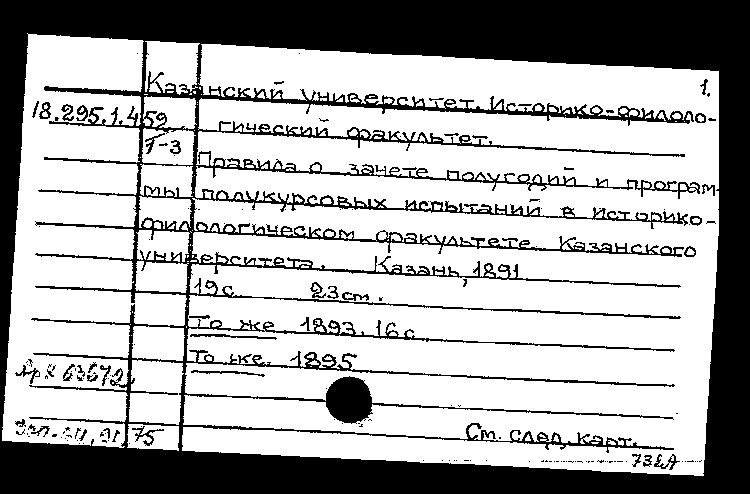 1.
Казанский университет. Историко-филоло-
18.295.1.459 гический факультет.
Т-3
Правила о зачете полугодий и програм-
мы полукурсовых испытаний в историко-
филологическом факультете Казанского
университета. Казань, 1891
19с. 23см.
То же 1893. 16с.
То же. 1895
63672
См. след. карт.